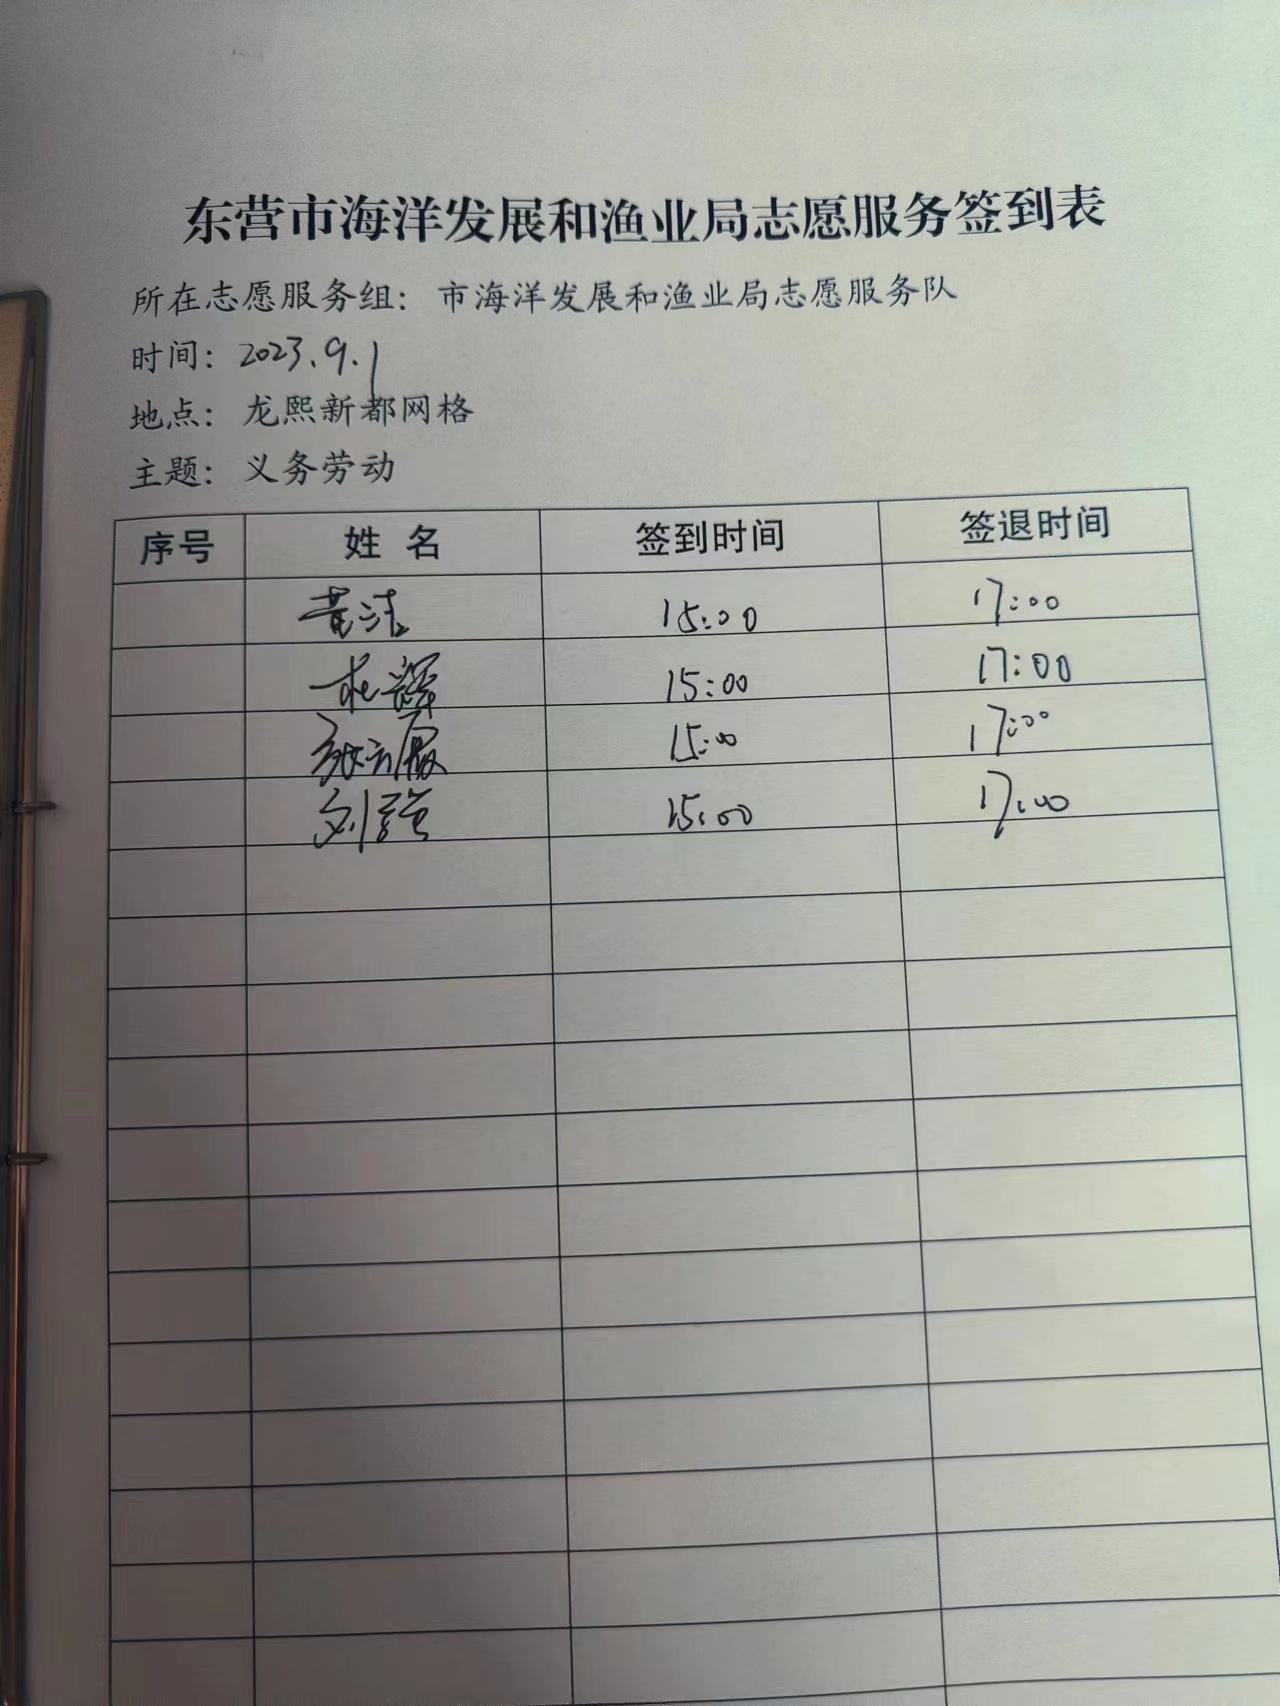 东营市海洋发展和渔业局志愿服务签到表
所在志愿服务组：市海洋发展和渔业局志愿服务队
时间：2023.9.1
地点：龙熙新都网格
主题：义务劳动
序号 姓名 签到时间 签退时间
15:00 17:00
15:00 17:00
15:00 17:00
刘强 15:00 17:00